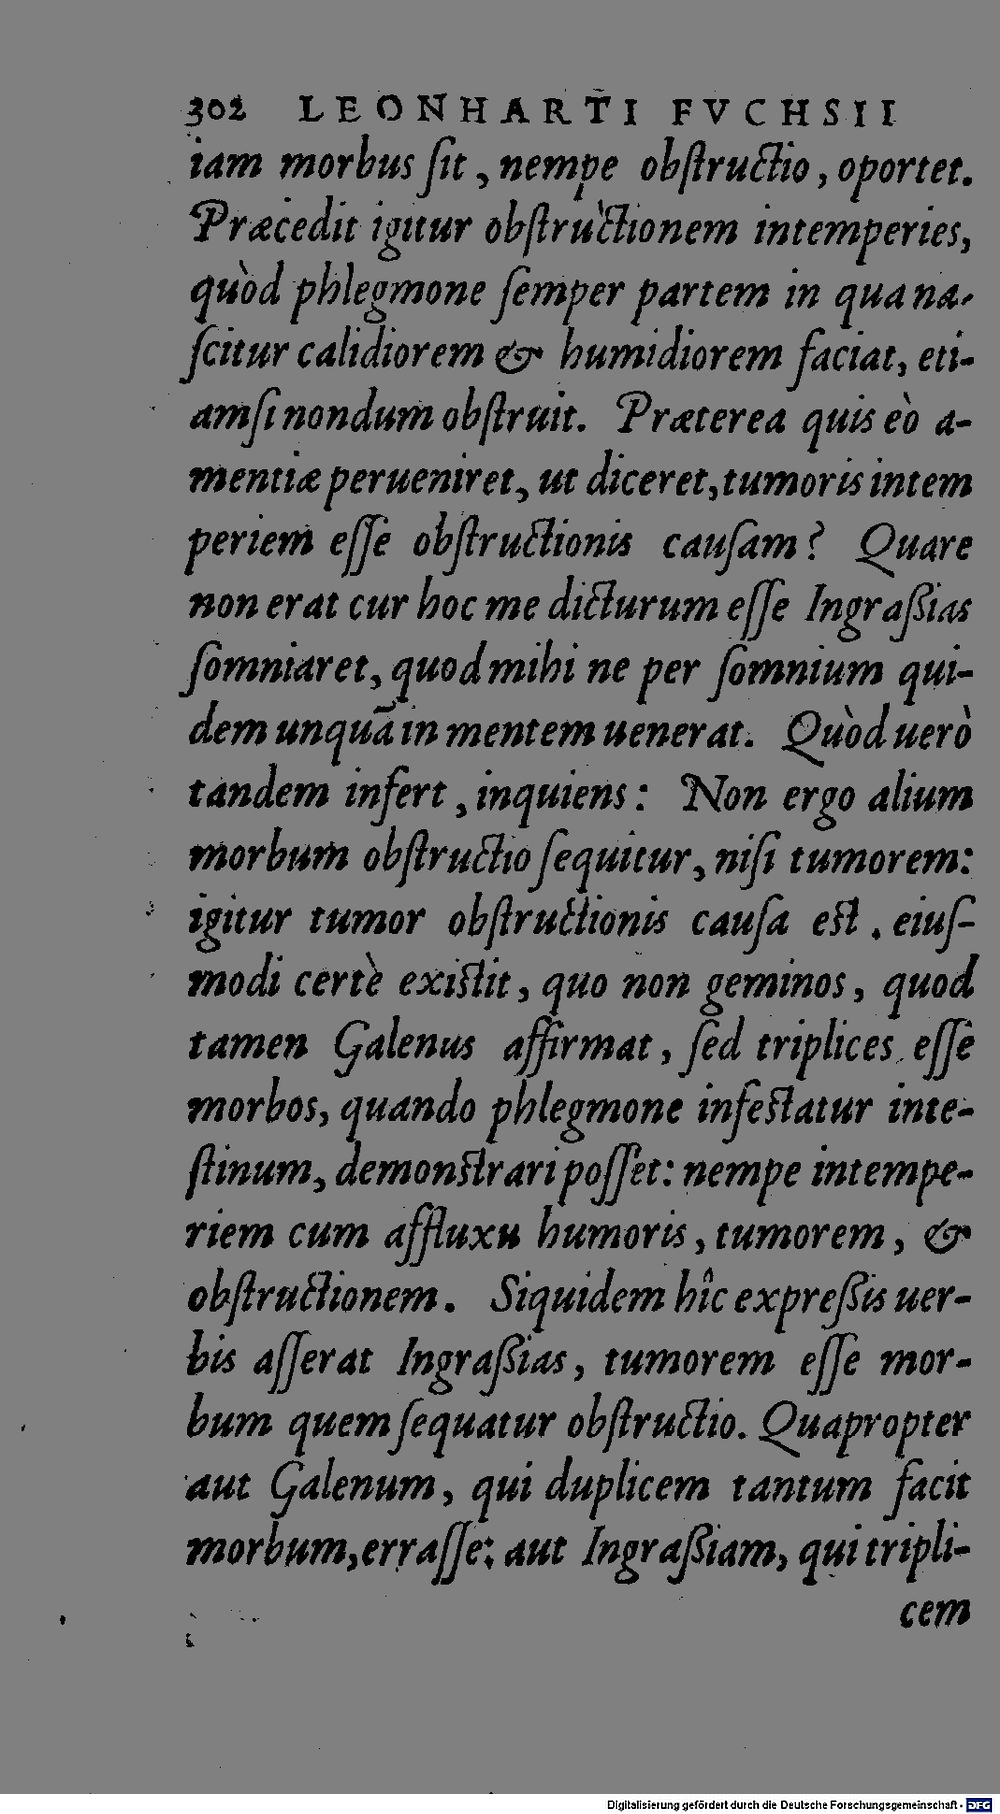 302 LEONHARTI FVCHSII
iam morbus ſit, nempe obſtructio, oportet.
Præcedit igitur obſtructionem intemperies,
quòd phlegmone ſemper partem in qua na-
ſcitur calidiorem & humidiorem faciat, eti-
amſi nondum obſtruit. Præterea quis eò a-
mentiæ perueniret, ut diceret, tumoris intem
periem eſſe obſtructionis cauſam? Quare
non erat cur hoc me dicturum eſſe Ingraßias
ſomniaret, quod mihi ne per ſomnium qui-
dem unquã in mentem uenerat. Quòd uerò
tandem infert, inquiens: Non ergo alium
morbum obſtructio ſequitur, niſi tumorem:
igitur tumor obſtructionis cauſa eſt. eiuſ-
modi certè exiſtit, quo non geminos, quod
tamen Galenus affirmat, ſed triplices eſſe
morbos, quando phlegmone infeſtatur inte-
ſtinum, demonſtrari poſſet: nempe intempe-
riem cum affluxu humoris, tumorem, &
obſtructionem. Siquidem hîc expreßis uer-
bis aſſerat Ingraßias, tumorem eſſe mor-
bum quem ſequatur obſtructio. Quapropter
aut Galenum, qui duplicem tantum facit
morbum, erraſſe: aut Ingraßiam, qui tripli-
cem
Digitalisierung gefördert durch die Deutsche Forschungsgemeinschaft - DFG